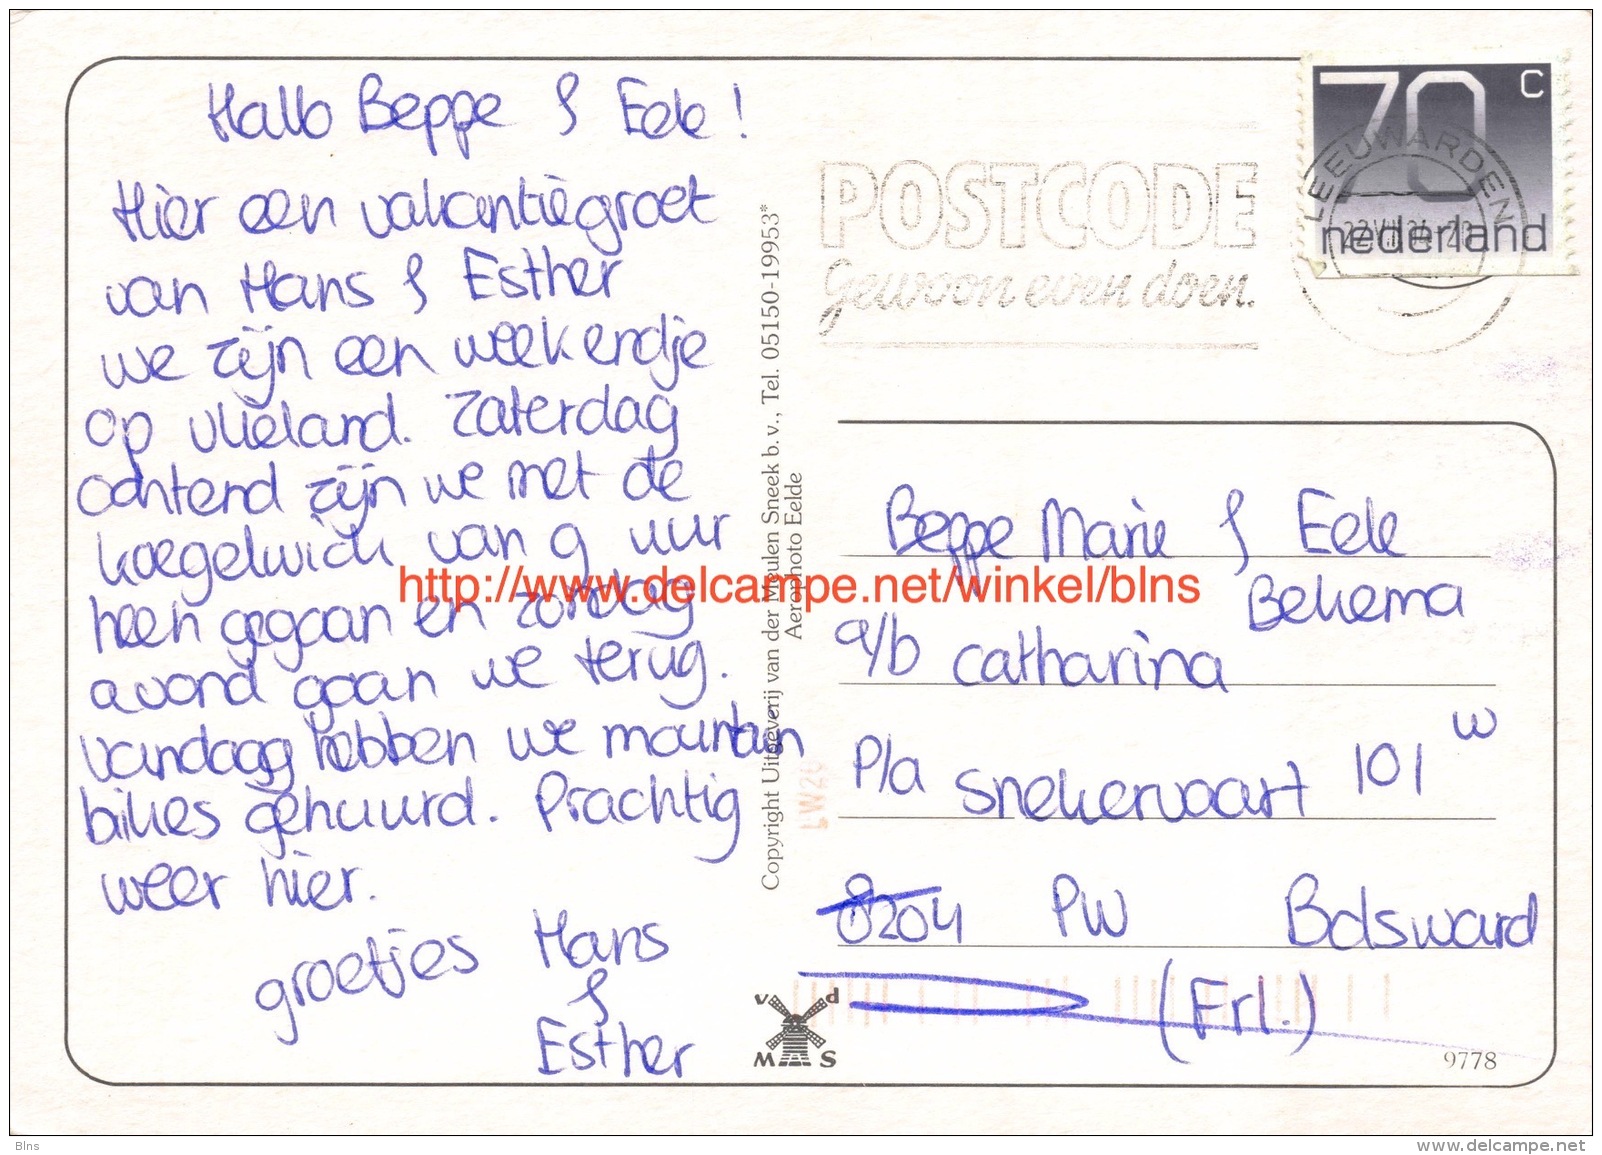 Hallo Beppe & Eele!
Hier een vakantiegroet
van Hans & Esther
we zijn een weekendje
op vlieland. Zaterdag
ochtend zijn we met de
koegelwieck van 9 uur
heen gegaan en zondag
avond gaan we terug.
vandaag hebben we mountain
bikes gehuurd. Prachtig
weer hier.
groetjes Hans
&
Esther
Copyright Uitgeverij van der Meulen Sneek b.v., Tel. 05150-19953*
Aerophoto Eelde
POSTCODE
Gewoon even doen.
70 c
nederland
LEEUWARDEN
Beppe Marie & Eele
Bekema
a/b Catharina
P/a Snekervaart 101 w
8204 PW Bolsward
(Frl.)
v d
M S
9778
http://www.delcampe.net/winkel/blns
Blns
www.delcampe.net